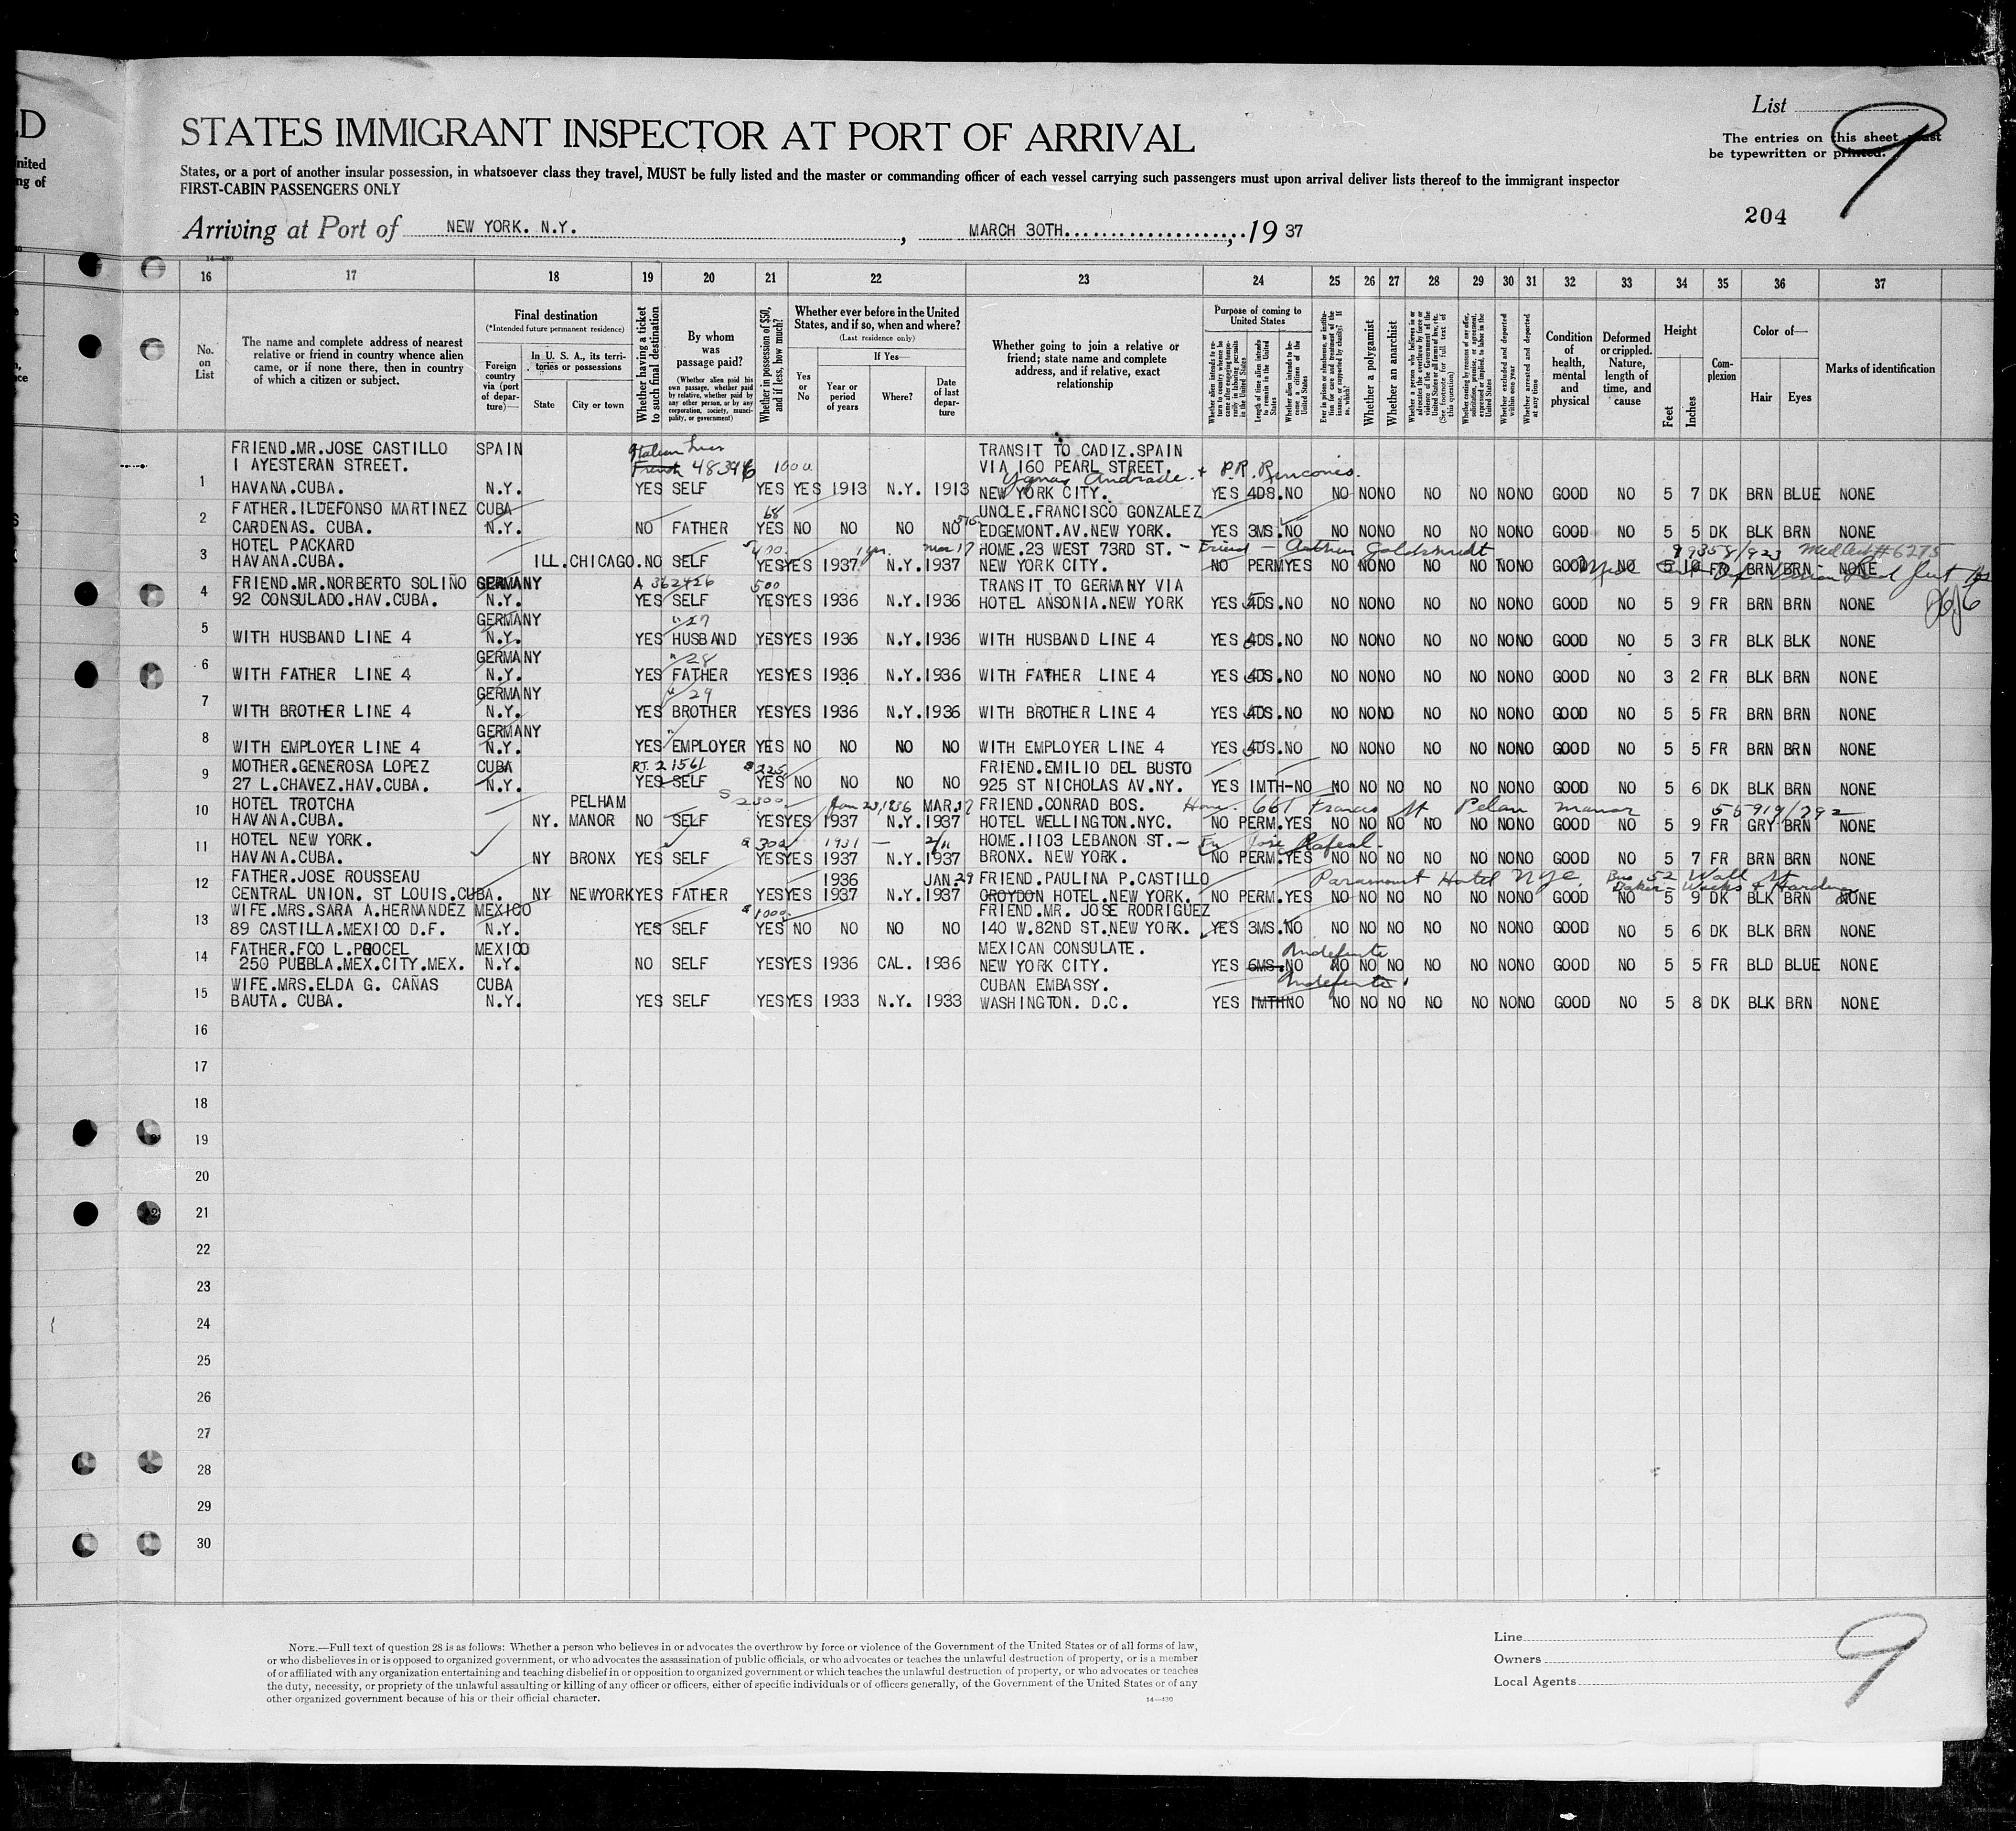 LD
nited
ng of
List
9
STATES IMMIGRANT INSPECTOR AT PORT OF ARRIVAL
The entries on this sheet must
be typewritten or printed.
States, or a port of another insular possession, in whatsoever class they travel, MUST be fully listed and the master or commanding officer of each vessel carrying such passengers must upon arrival deliver lists thereof to the immigrant inspector
FIRST-CABIN PASSENGERS ONLY
204
Arriving at Port of NEW YORK. N.Y. , MARCH 30TH , 19 37
16 17 18 19 20 21 22 23 24 25 26 27 28 29 30 31 32 33 34 35 36 37
No. on List
The name and complete address of nearest relative or friend in country whence alien came, or if none there, then in country of which a citizen or subject.
Final destination
(*Intended future permanent residence)
Foreign country via (port of departure)—
In U. S. A., its territories or possessions
State
City or town
Whether having a ticket to such final destination
By whom was passage paid?
(Whether alien paid his own passage, whether paid by relative, whether paid by any other person, or by any corporation, society, municipality, or government)
Whether in possession of $50, and if less, how much?
Whether ever before in the United States, and if so, when and where?
(Last residence only)
Yes or No
If Yes—
Year or period of years
Where?
Date of last departure
Whether going to join a relative or friend; state name and complete address, and if relative, exact relationship
Purpose of coming to United States
Whether alien intends to return to country whence he came after engaging temporarily in laboring pursuits in the United States
Length of time alien intends to remain in the United States
Whether alien intends to become a citizen of the United States
Ever in prison or almshouse, or institution for care and treatment of the insane, or supported by charity? If so, which?
Whether a polygamist
Whether an anarchist
Whether a person who believes in or advocates the overthrow by force or violence of the Government of the United States or all forms of law, etc. (See footnote for full text of this question)
Whether coming by reasons of any offer, solicitation, promise, or agreement, expressed or implied, to labor in the United States
Whether excluded and deported within one year
Whether arrested and deported at any time
Condition of health, mental and physical
Deformed or crippled. Nature, length of time, and cause
Height
Feet
Inches
Complexion
Color of—
Hair
Eyes
Marks of identification
FRIEND.MR.JOSE CASTILLO SPAIN Italian TRANSIT TO CADIZ.SPAIN
1 AYESTERAN STREET. French 48394 1000 VIA 160 PEARL STREET. Andrade + P.R. Rincones.
1 HAVANA.CUBA. N.Y. YES SELF YES YES 1913 N.Y. 1913 NEW YORK CITY. YES 4DS.NO NO NO NO NO NO NO NO GOOD NO 5 7 DK BRN BLUE NONE
FATHER.ILDEFONSO MARTINEZ CUBA 68 UNCLE.FRANCISCO GONZALEZ
2 CARDENAS. CUBA. N.Y. NO FATHER YES NO NO NO NO 515 EDGEMONT.AV.NEW YORK. YES 3MS. NO NO NO NO NO NO NO NO GOOD NO 5 5 DK BLK BRN NONE
HOTEL PACKARD 400. 1 yr. Mar 17 HOME.23 WEST 73RD ST. - Friend - Arthur Goldschmidt 99358/923 Med Cert #6275
3 HAVANA.CUBA. ILL.CHICAGO.NO SELF YES YES 1937 N.Y. 1937 NEW YORK CITY. NO PERM YES NO NO NO NO NO NO NO GOOD NO 5 10 FR BRN BRN NONE
FRIEND.MR.NORBERTO SOLIÑO GERMANY A 362426 500 TRANSIT TO GERMANY VIA
4 92 CONSULADO.HAV.CUBA. N.Y. YES SELF YES YES 1936 N.Y. 1936 HOTEL ANSONIA.NEW YORK YES 4DS.NO NO NO NO NO NO NO NO GOOD NO 5 9 FR BRN BRN NONE
GERMANY " 27
5 WITH HUSBAND LINE 4 N.Y. YES HUSBAND YES YES 1936 N.Y. 1936 WITH HUSBAND LINE 4 YES 4DS.NO NO NO NO NO NO NO NO GOOD NO 5 3 FR BLK BLK NONE
GERMANY " 28
6 WITH FATHER LINE 4 N.Y. YES FATHER YES YES 1936 N.Y. 1936 WITH FATHER LINE 4 YES 4DS.NO NO NO NO NO NO NO NO GOOD NO 3 2 FR BLK BRN NONE
GERMANY " 29
7 WITH BROTHER LINE 4 N.Y. YES BROTHER YES YES 1936 N.Y. 1936 WITH BROTHER LINE 4 YES 4DS.NO NO NO NO NO NO NO NO GOOD NO 5 5 FR BRN BRN NONE
GERMANY "
8 WITH EMPLOYER LINE 4 N.Y. YES EMPLOYER YES NO NO NO NO WITH EMPLOYER LINE 4 YES 4DS.NO NO NO NO NO NO NO NO GOOD NO 5 5 FR BRN BRN NONE
MOTHER.GENEROSA LOPEZ CUBA RT. 21561 $225 FRIEND.EMILIO DEL BUSTO
9 27 L.CHAVEZ.HAV.CUBA. N.Y. YES SELF YES NO NO NO NO 925 ST NICHOLAS AV.NY. YES 1MTH-NO NO NO NO NO NO NO NO GOOD NO 5 6 DK BLK BRN NONE
HOTEL TROTCHA PELHAM $2300 Jan 23,1936 MAR.17 FRIEND.CONRAD BOS. Home. 661 Francis St Pelan Manor 55919/792
10 HAVANA.CUBA. NY. MANOR NO SELF YES YES 1937 N.Y. 1937 HOTEL WELLINGTON.NYC. NO PERM.YES NO NO NO NO NO NO NO GOOD NO 5 9 FR GRY BRN NONE
HOTEL NEW YORK. $300 1931 — 2/11 HOME.1103 LEBANON ST. - Fr Jose Rafael-
11 HAVANA.CUBA. NY BRONX YES SELF YES YES 1937 N.Y. 1937 BRONX. NEW YORK. NO PERM.YES NO NO NO NO NO NO NO GOOD NO 5 7 FR BRN BRN NONE
FATHER.JOSE ROUSSEAU 1936 JAN.29 FRIEND.PAULINA P.CASTILLO Paramount Hotel NYC. Bus 52 Wall St
12 CENTRAL UNION. ST LOUIS.CUBA. NY NEWYORK YES FATHER YES YES 1937 N.Y. 1937 CROYDON HOTEL.NEW YORK. NO PERM.YES NO NO NO NO NO NO NO GOOD NO 5 9 DK BLK BRN NONE
WIFE.MRS.SARA A.HERNANDEZ MEXICO $1000 FRIEND.MR. JOSE RODRIGUEZ
13 89 CASTILLA.MEXICO D.F. N.Y. YES SELF YES NO NO NO NO 140 W.82ND ST.NEW YORK. YES 3MS.NO NO NO NO NO NO NO NO GOOD NO 5 6 DK BLK BRN NONE
FATHER.FCO L.PROCEL MEXICO MEXICAN CONSULATE. Indefinite
14 250 PUEBLA.MEX.CITY.MEX. N.Y. NO SELF YES YES 1936 CAL. 1936 NEW YORK CITY. YES 6MS.NO NO NO NO NO NO NO NO GOOD NO 5 5 FR BLD BLUE NONE
WIFE.MRS.ELDA G. CAÑAS CUBA CUBAN EMBASSY. Indefinite
15 BAUTA. CUBA. N.Y. YES SELF YES YES 1933 N.Y. 1933 WASHINGTON. D.C. YES 1MTH NO NO NO NO NO NO NO NO GOOD NO 5 8 DK BLK BRN NONE
16
17
18
19
20
21
22
23
24
25
26
27
28
29
30
NOTE.—Full text of question 28 is as follows: Whether a person who believes in or advocates the overthrow by force or violence of the Government of the United States or of all forms of law,
or who disbelieves in or is opposed to organized government, or who advocates the assassination of public officials, or who advocates or teaches the unlawful destruction of property, or is a member
of or affiliated with any organization entertaining and teaching disbelief in or opposition to organized government or which teaches the unlawful destruction of property, or who advocates or teaches
the duty, necessity, or propriety of the unlawful assaulting or killing of any officer or officers, either of specific individuals or of officers generally, of the Government of the United States or of any
other organized government because of his or their official character.
14—430
Line
Owners
Local Agents
9